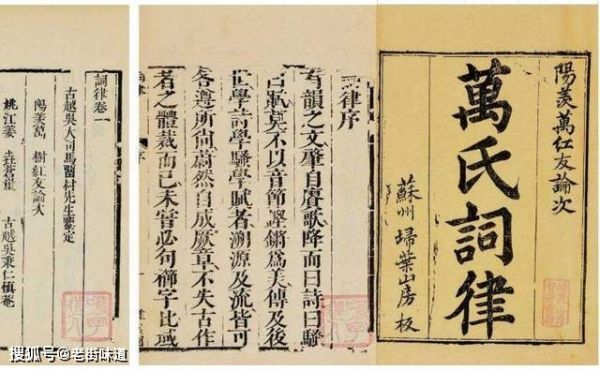 陽羨萬紅友論次
萬氏詞律
蘇州埽葉山房板
律序
有韻之文肇自賡歌降而曰詩曰騷
曰賦莫不以音節鏗鏘爲美傳及後
世學詩學騷學賦者溯源及流皆可
各遵所尚蔚然自成厥章不失古作
者之體裁而已未嘗必句櫛字比域
詞律卷一
古越吳大司馬村先生鑒定
陽羨萬 樹紅友論次
姚江姜 垚蒼 古越吳秉仁慎菴
搜狐号@老街味道